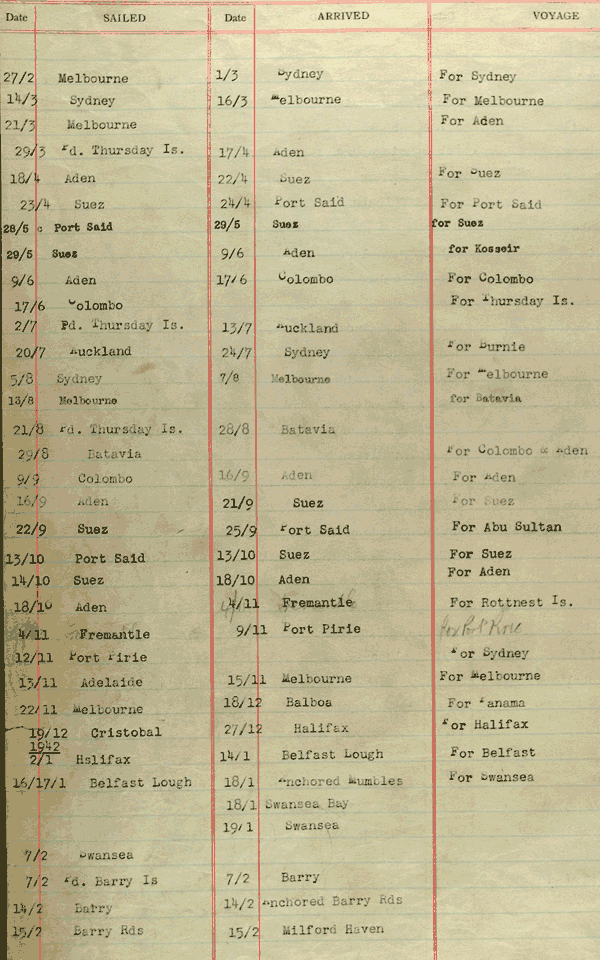 Date SAILED Date ARRIVED VOYAGE
27/2 Melbourne 1/3 Sydney For Sydney
14/3 Sydney 16/3 Melbourne For Melbourne
21/3 Melbourne For Aden
29/3 Pd. Thursday Is. 17/4 Aden
18/4 Aden 22/4 Suez For Suez
23/4 Suez 24/4 Port Said For Port Said
28/5 Port Said 29/5 Suez for Suez
29/5 Suez 9/6 Aden for Kosseir
9/6 Aden 17/6 Colombo For Colombo
17/6 Colombo For Thursday Is.
2/7 Pd. Thursday Is. 13/7 Auckland
20/7 Auckland 24/7 Sydney For Burnie
5/8 Sydney 7/8 Melbourne For Melbourne
13/8 Melbourne for Batavia
21/8 Pd. Thursday Is. 28/8 Batavia
29/8 Batavia For Colombo & Aden
9/9 Colombo 16/9 Aden For Aden
16/9 Aden 21/9 Suez For Suez
22/9 Suez 25/9 Port Said For Abu Sultan
13/10 Port Said 13/10 Suez For Suez
14/10 Suez 18/10 Aden For Aden
18/10 Aden 4/11 Fremantle For Rottnest Is.
4/11 Fremantle 9/11 Port Pirie
12/11 Port Pirie For Sydney
13/11 Adelaide 15/11 Melbourne For Melbourne
22/11 Melbourne 18/12 Balboa For Panama
19/12 Cristobal 27/12 Halifax For Halifax
1942
2/1 Hslifax 14/1 Belfast Lough For Belfast
16/17/1 Belfast Lough 18/1 Anchored Mumbles For Swansea
18/1 Swansea Bay
19/1 Swansea
7/2 Swansea
7/2 Pd. Barry Is 7/2 Barry
14/2 Barry 14/2 Anchored Barry Rds
15/2 Barry Rds 15/2 Milford Haven